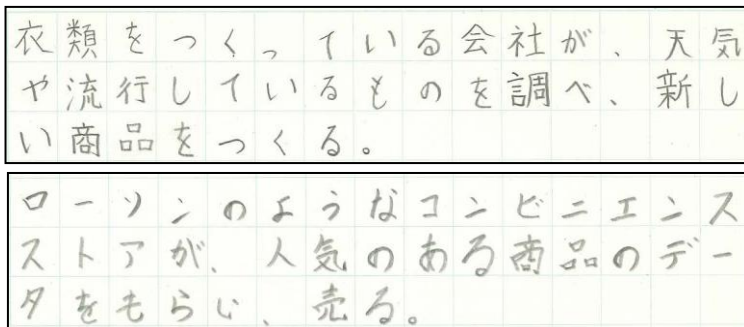 衣類をつくっている会社が、天気
や流行しているものを調べ、新し
い商品をつくる。
ローソンのようなコンビニエンス
ストアが、人気のある商品のデー
タをもらい、売る。